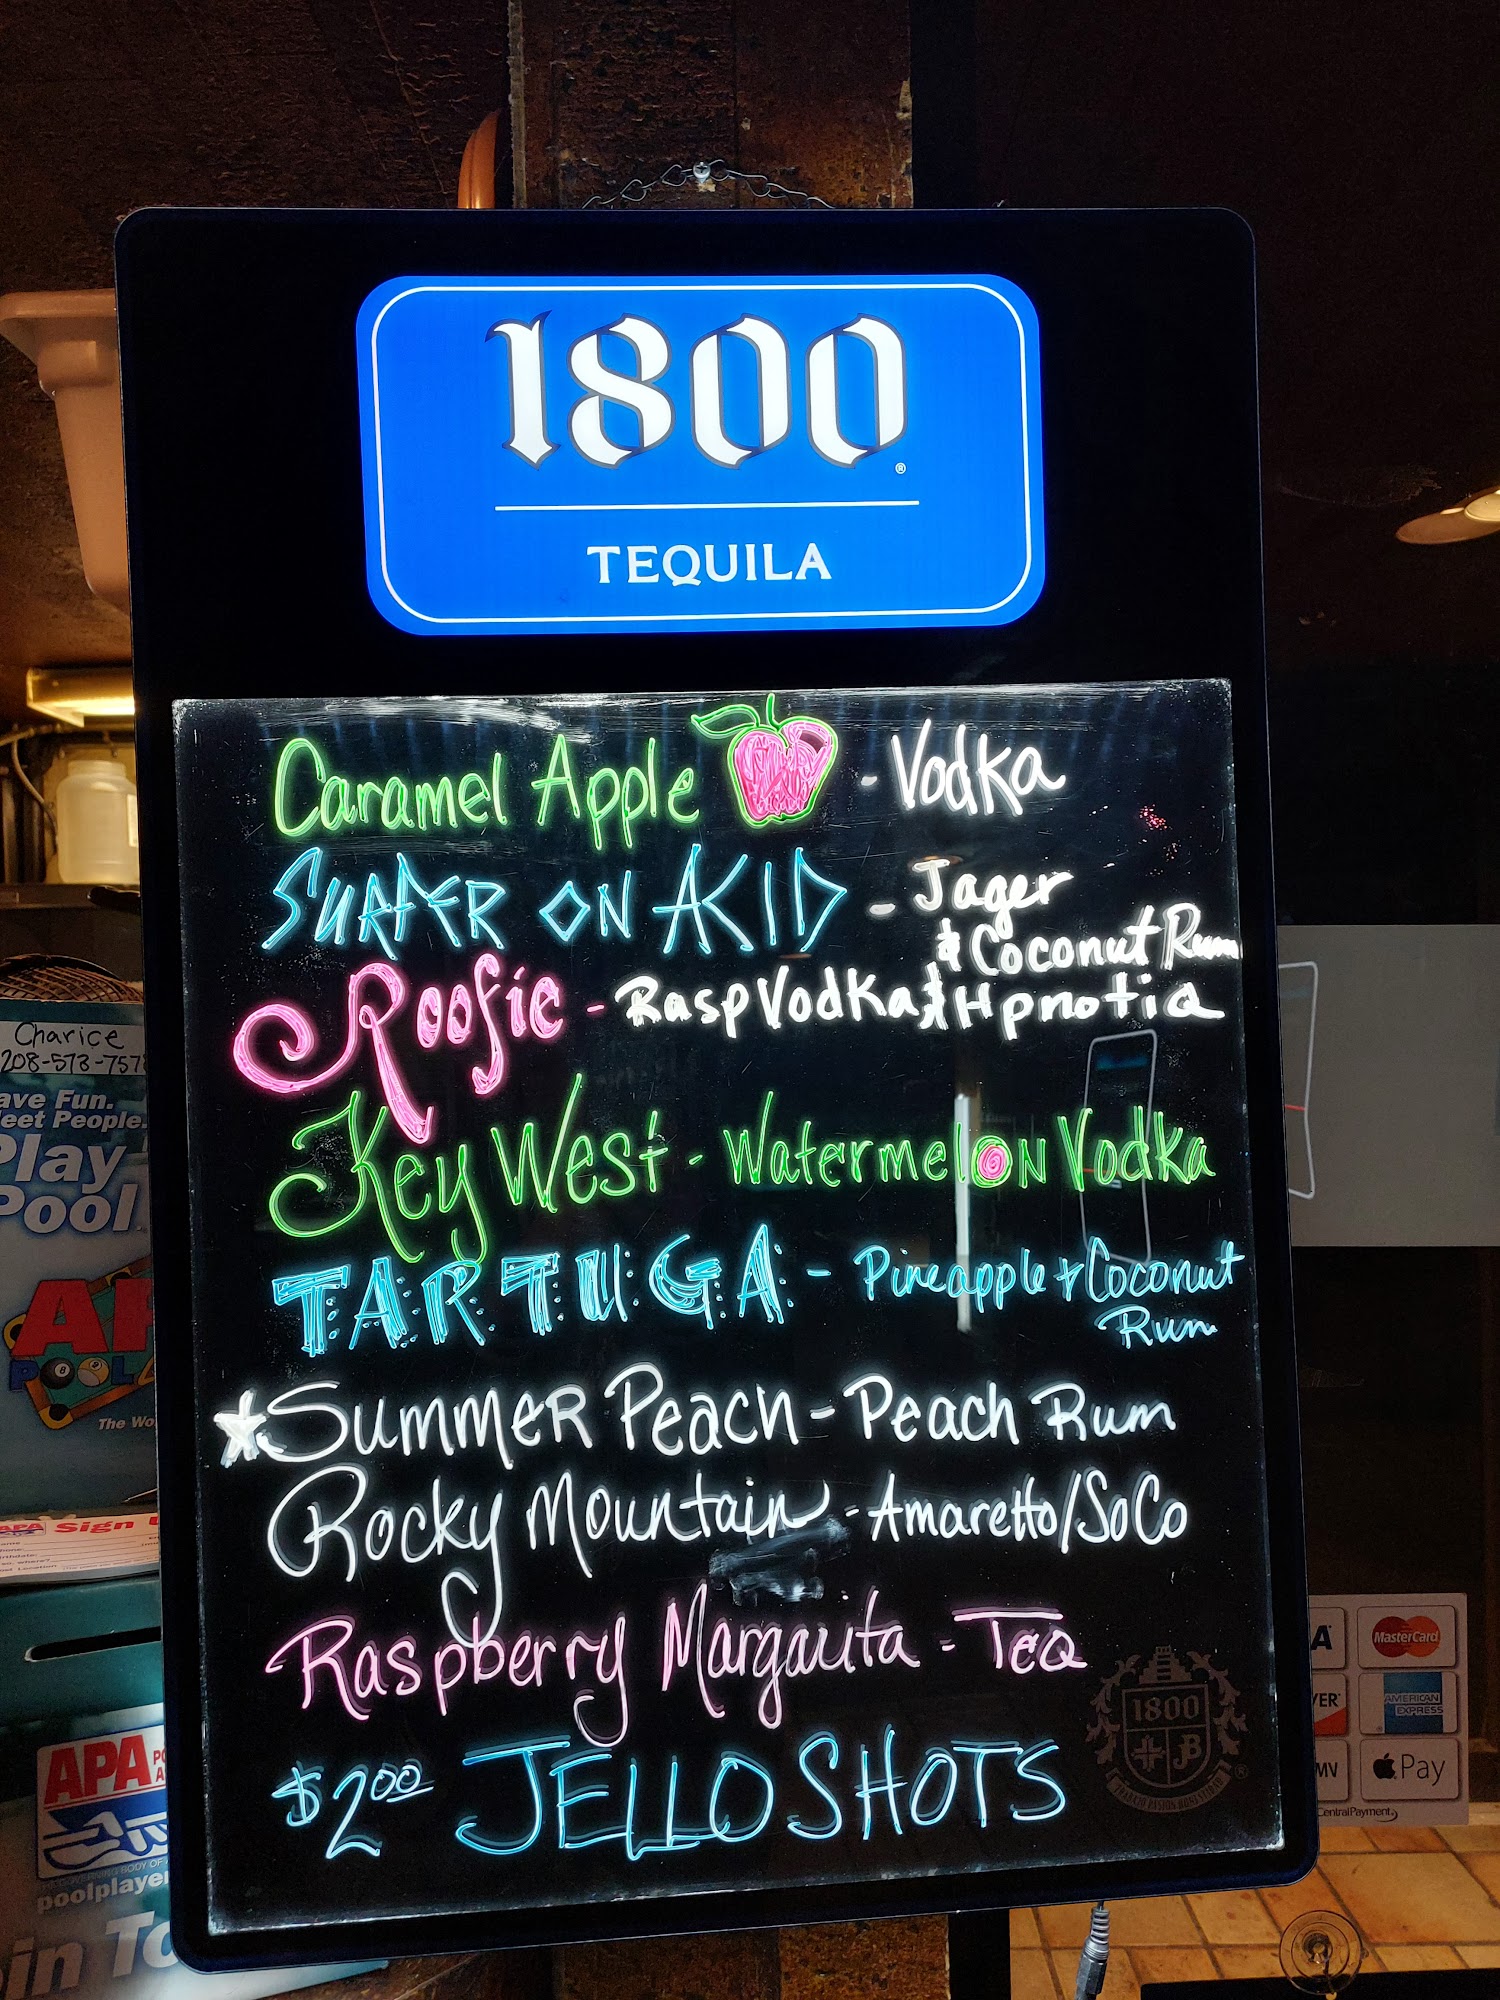 1800
®
TEQUILA
Caramel Apple - Vodka
SURFER ON ACID - Jager
& Coconut Rum
Roofie - Rasp Vodka & Hpnotiq
Key West - Watermelon Vodka
TARTUGA - Pineapple + Coconut
Rum
Summer Peach - Peach Rum
Rocky Mountain - Amaretto/SoCo
Raspberry Margarita - TEQ
$2.00 JELLO SHOTS
1800
®
Charice
208-573-757
ave Fun.
eet People.
Play
Pool
AP
POOL
The Wo
APA Sign
APA
poolplayer
in To
A
MasterCard
VER
AMERICAN
EXPRESS
MV
Pay
CentralPayment